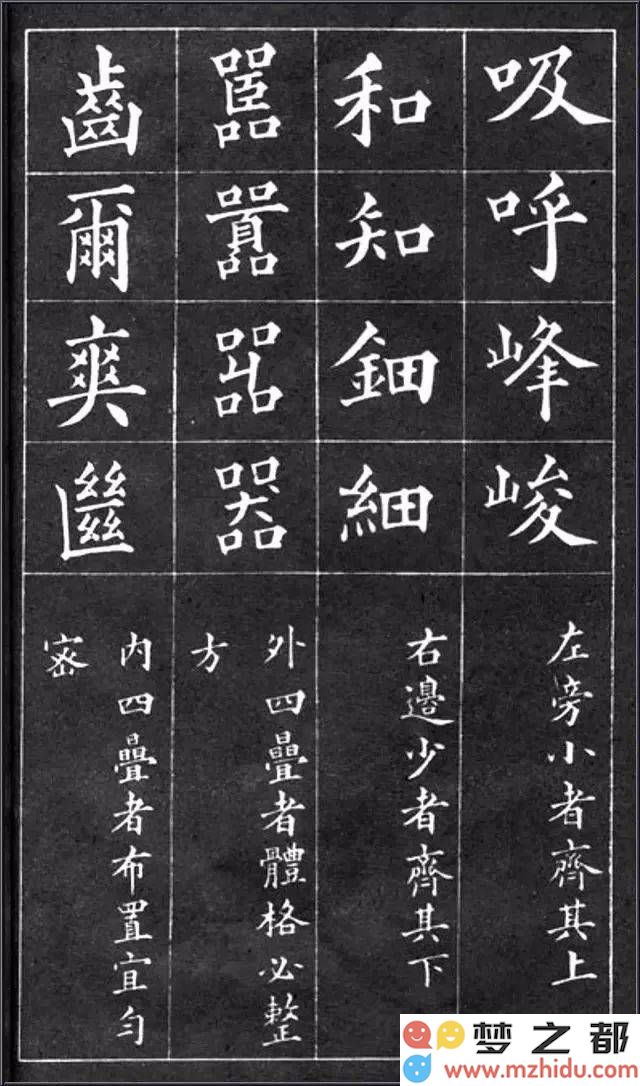 吸呼峰峻
左旁小者齊其上
和知鈿細
右邊少者齊其下
嚚囂嘂器
外四疊者體格必整
方
齒爾爽
內四疊者布置宜勻
密
梦之都
www.mzhidu.com